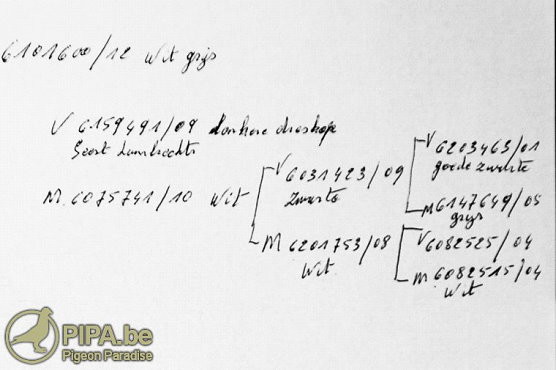 6101600/12 Wit grijs
V 6159491/09 donkere
Geert Lambrechts
M. 6075741/10 Wit
V 6031423/09
Zwarte
M 6201753/08
Wit.
V 6203463/01
goede zwarte
M 6147649/05
grijs
V 6082525/04
M 6082515/04
Wit
PIPA.be
Pigeon Paradise